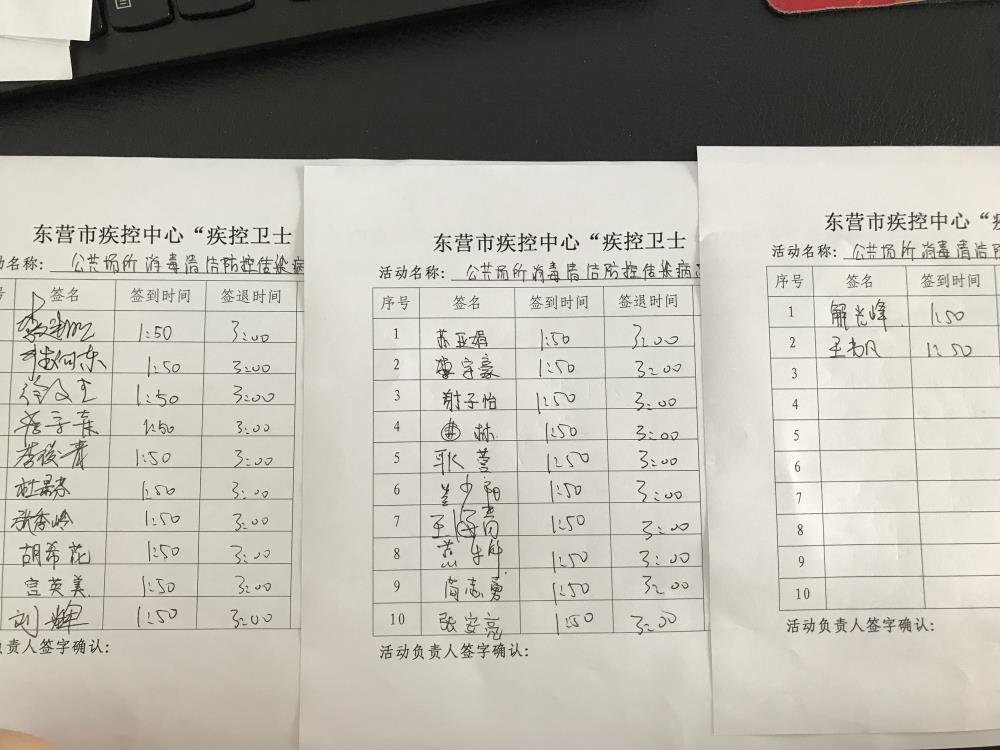 东营市疾控中心“疾控卫士
动名称: 公共场所消毒清洁防控传染病
号 签名 签到时间 签退时间
1:50 3:00
1:50 3:00
1:50 3:00
1:50 3:00
李俊青 1:50 3:00
1:50 3:00
张秀岭 1:50 3:00
胡希花 1:50 3:00
宫英美 1:50 3:00
刘辉 1:50 3:00
负责人签字确认:
东营市疾控中心“疾控卫士
活动名称: 公共场所消毒清洁防控传染病
序号 签名 签到时间 签退时间
1 苏亚娟 1:50 3:00
2 李宇豪 1:50 3:00
3 谢子怡 1:50 3:00
4 曲栋 1:50 3:00
5 耿莹 1:50 3:00
6 兰少阳 1:50 3:00
7 1:50 3:00
8 1:50 3:00
9 尚志勇 1:50 3:00
10 张安亮 1:50 3:00
活动负责人签字确认:
东营市疾控中心“疾
活动名称: 公共场所消毒清洁防
序号 签名 签到时间
1 解光峰 1:50
2 王尚凡 1:50
3
4
5
6
7
8
9
10
活动负责人签字确认: